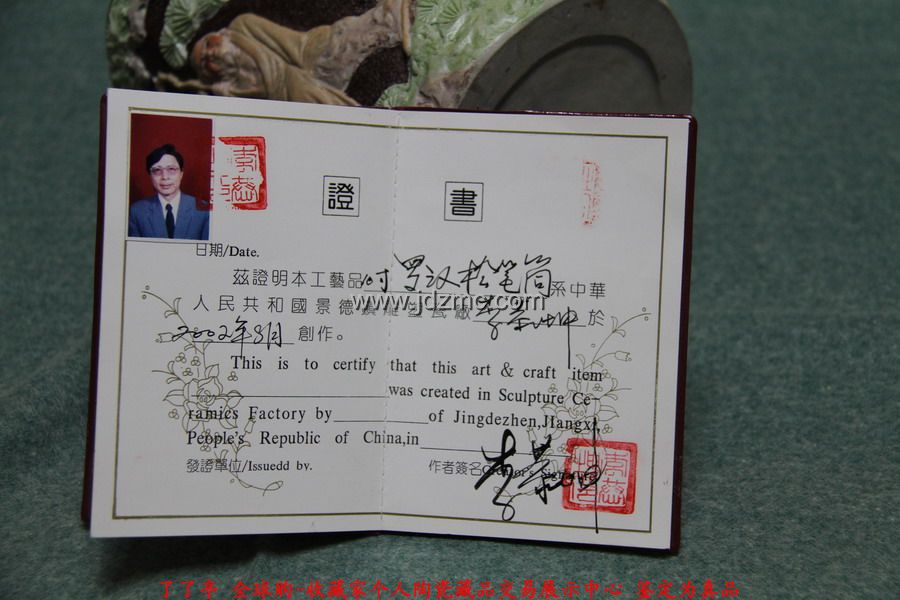 證 書
日期/Date.
茲證明本工藝品10吋罗汉松笔筒系中華
人民共和國景德鎮雕塑瓷廠李 坤於
2002年8月創作。
www.jdzmc.com
This is to certify that this art & craft item
was created in Sculpture Ce-
ramics Factory by of Jingdezhen,JIangxi,
People's Republic of China,in
發證單位/Issuedd by. 作者簽名
李 坤
了了亭 全球购-收藏家个人陶瓷藏品交易展示中心 鉴定为真品